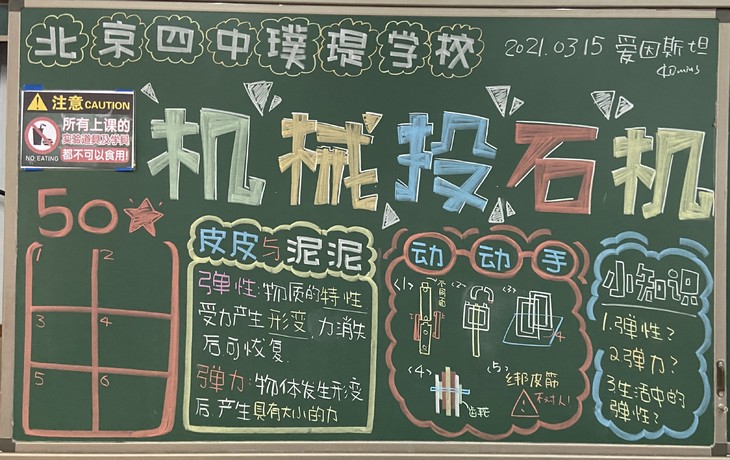 北京四中璞瑅学校
2021.03.15 爱因斯坦
40mins
注意 CAUTION
所有上课的
实验道具及学具
都不可以食用!
NO EATING
机械投石机
50
1 2
3 4
5 6
皮皮与泥泥
弹性:物质的特性
受力产生形变,力消失
后可恢复.
弹力:物体发生形变
后,产生具有大小的力
动动手
<1> <2> <3>
4
<4> <5>
绑皮筋
不对人!
齿轮
小知识
1.弹性?
2.弹力?
3.生活中的
弹性?